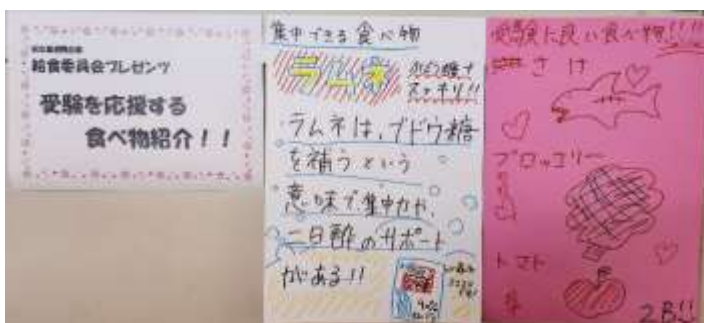 給食委員会プレゼンツ
受験を応援する
食べ物紹介！！
集中できる食べ物
ラムネ
ブドウ糖で
スッキリ!!
ラムネは、ブドウ糖
を補うという
意味で集中力や、
二日酔のサポート
がある!!
受験に良い食べ物!!!!
さけ
ブロッコリー
トマト
2B!!